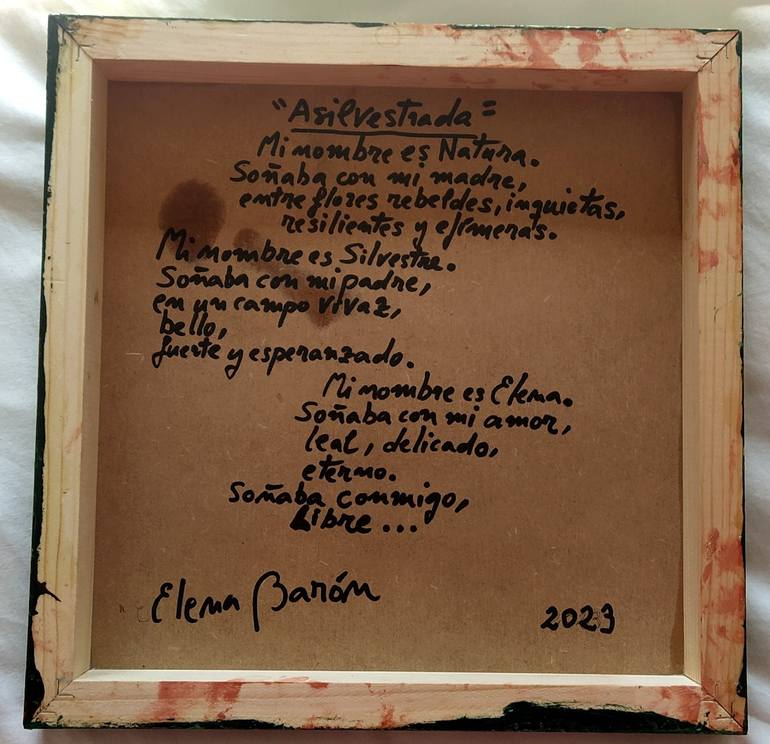 "Asilvestrada"
Mi nombre es Natura.
Soñaba con mi madre,
entre flores rebeldes, inquietas,
resilientes y efímeras.
Mi nombre es Silvestre.
Soñaba con mi padre,
en un campo vivaz,
bello,
fuerte y esperanzado.
Mi nombre es Elena.
Soñaba con mi amor,
leal, delicado,
eterno.
Soñaba conmigo,
Libre...
Elena Barón
2023